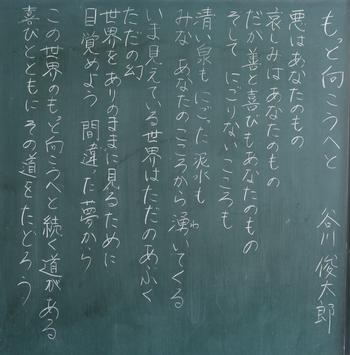 もっと向こうへと 谷川 俊太郎
悪はあなたのもの
哀しみはあなたのもの
だが善と喜びもあなたのもの
そして にごりないこころも
清い泉も にごった泥も
みな あなたのこころから 湧いてくる
わ
いま見えている世界はただのあぶく
ただの幻
世界をありのままに見るために
目覚めよう 間違った夢から
この世界のもっと向こうへと続く道がある
喜びとともに その道をたどろう